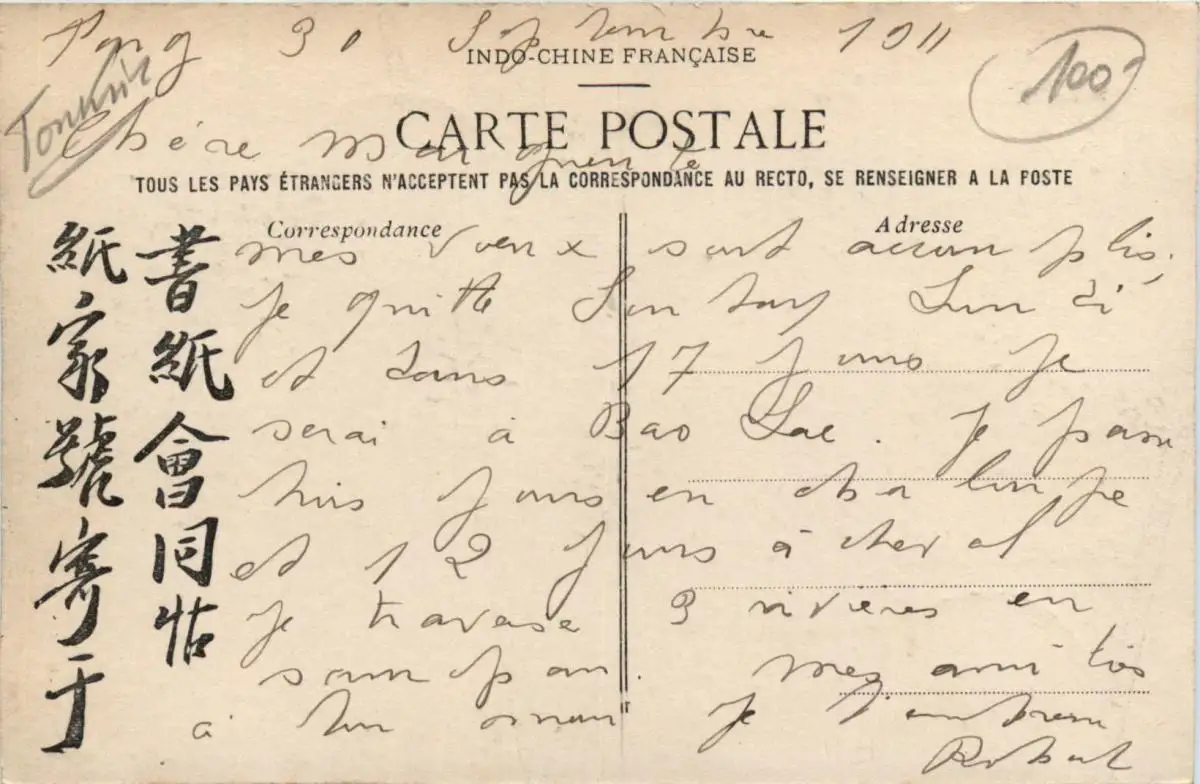 Tong 30 Septembre 1911
INDO-CHINE FRANÇAISE
Tonkin
100
CARTE POSTALE
Chère Marguerite
TOUS LES PAYS ÉTRANGERS N'ACCEPTENT PAS LA CORRESPONDANCE AU RECTO, SE RENSEIGNER A LA POSTE
Correspondance
Adresse
mes voeux sont accomplis.
Je quitte Son tay Lundi
et dans 17 jours je
serai à Bao Lac. Je passe
trois jours en chaloupe
et 12 jours à cheval
Je traverse 3 rivières en
sampan. Mes amitiés
à Je t'embrasse
Robert
書紙會同
紙家號寄于